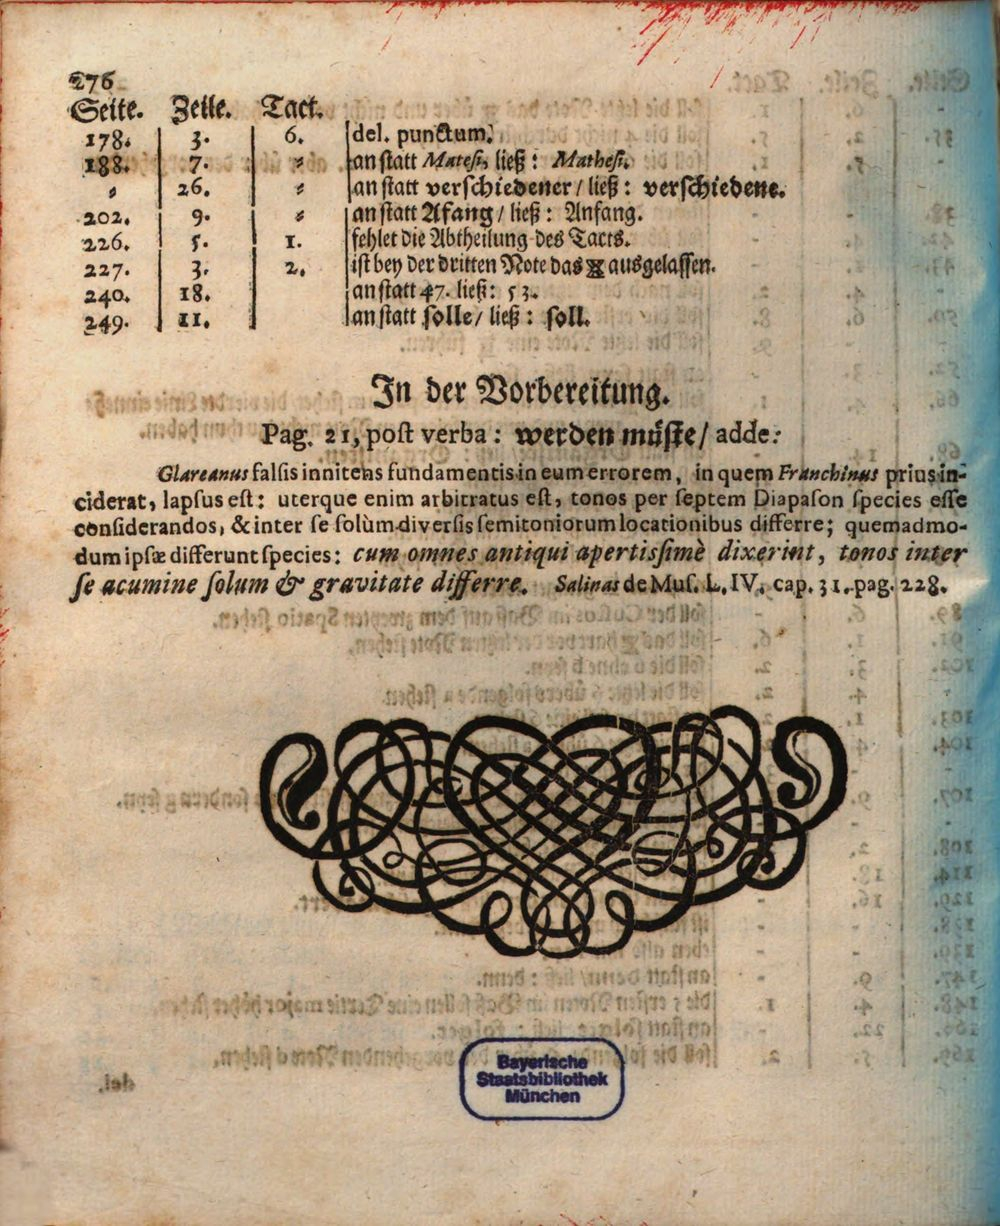 276
Seite. Zeile. Tact.
178. 3. 6. del. punctum.
188. 7. " an statt Matesi, ließ: Mathesi.
" 26. " an statt verschiedener / ließ: verschiedene.
202. 9. " an statt Afang / ließ: Anfang.
226. 5. 1. fehlet die Abtheilung des Tacts.
227. 3. 2. ist bey der dritten Note das ausgelassen.
240. 18. an statt 47. ließ: 53.
249. 11. an statt solle / ließ: soll.
In der Vorbereitung.
Pag. 21, post verba: werden müste / adde:
Glareanus falsis innitens fundamentis in eum errorem, in quem Franchinus prius in-
ciderat, lapsus est: uterque enim arbitratus est, tonos per septem Diapason species esse
considerandos, & inter se solùm diversis semitoniorum locationibus differre; quemadmo-
dum ipsæ differunt species: cum omnes antiqui apertissimè dixerint, tonos inter
se acumine solum & gravitate differre. Salinas de Mus. L. IV. cap. 31. pag. 228.
Bayerische
Staatsbibliothek
München